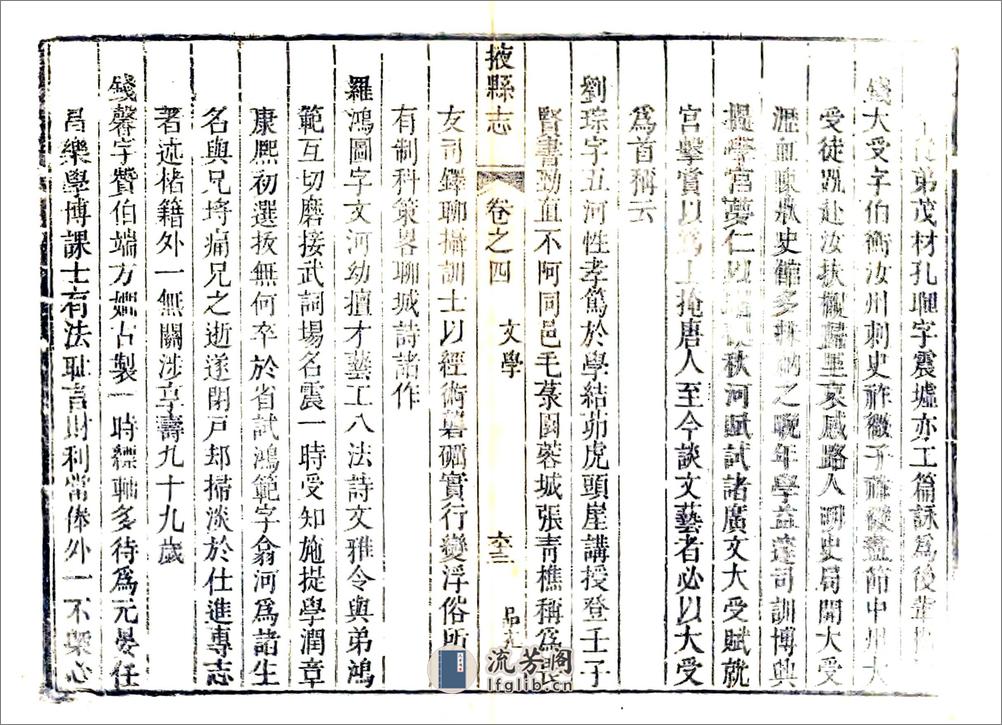 弟茂材孔聖字震墟亦工篇詠爲後輩
錢大受字伯衡汝州刺史祚徵子祚徵盡節中州大
受徒跣赴汝扶櫬歸里哀感路人明史局開大受
瀝血陳於史館多採之晚年學益邃司訓博興
提學宮夢仁以秋河賦試諸廣文大受賦就
宮擊賞以爲上掩唐人至今談文藝者必以大受
爲首稱云
劉琮字五河性孝篤於學結茆虎頭崖講授登壬子
賢書勁直不阿同邑毛菉園蓉城張青樵稱爲
友司鐸聊攝訓士以經術磨礪實行變浮俗所
有制科策畧聊城詩諸作
掖縣志
卷之四
文學
羅鴻圖字文河幼擅才藝工八法詩文雅令與弟鴻
範互切磨接武詞場名震一時受知施提學潤章
康熙初選拔無何卒於省試鴻範字翕河爲諸生
名與兄埒痛兄之逝遂閉戸却掃淡於仕進專志
著述楮籍外一無關涉享壽九十九歲
錢馨字贊伯端方嫺古製一時縹軸多待爲元晏任
昌樂學博課士有法耻言財利常俸外一不槩心
流芳阁
lfglib.cn